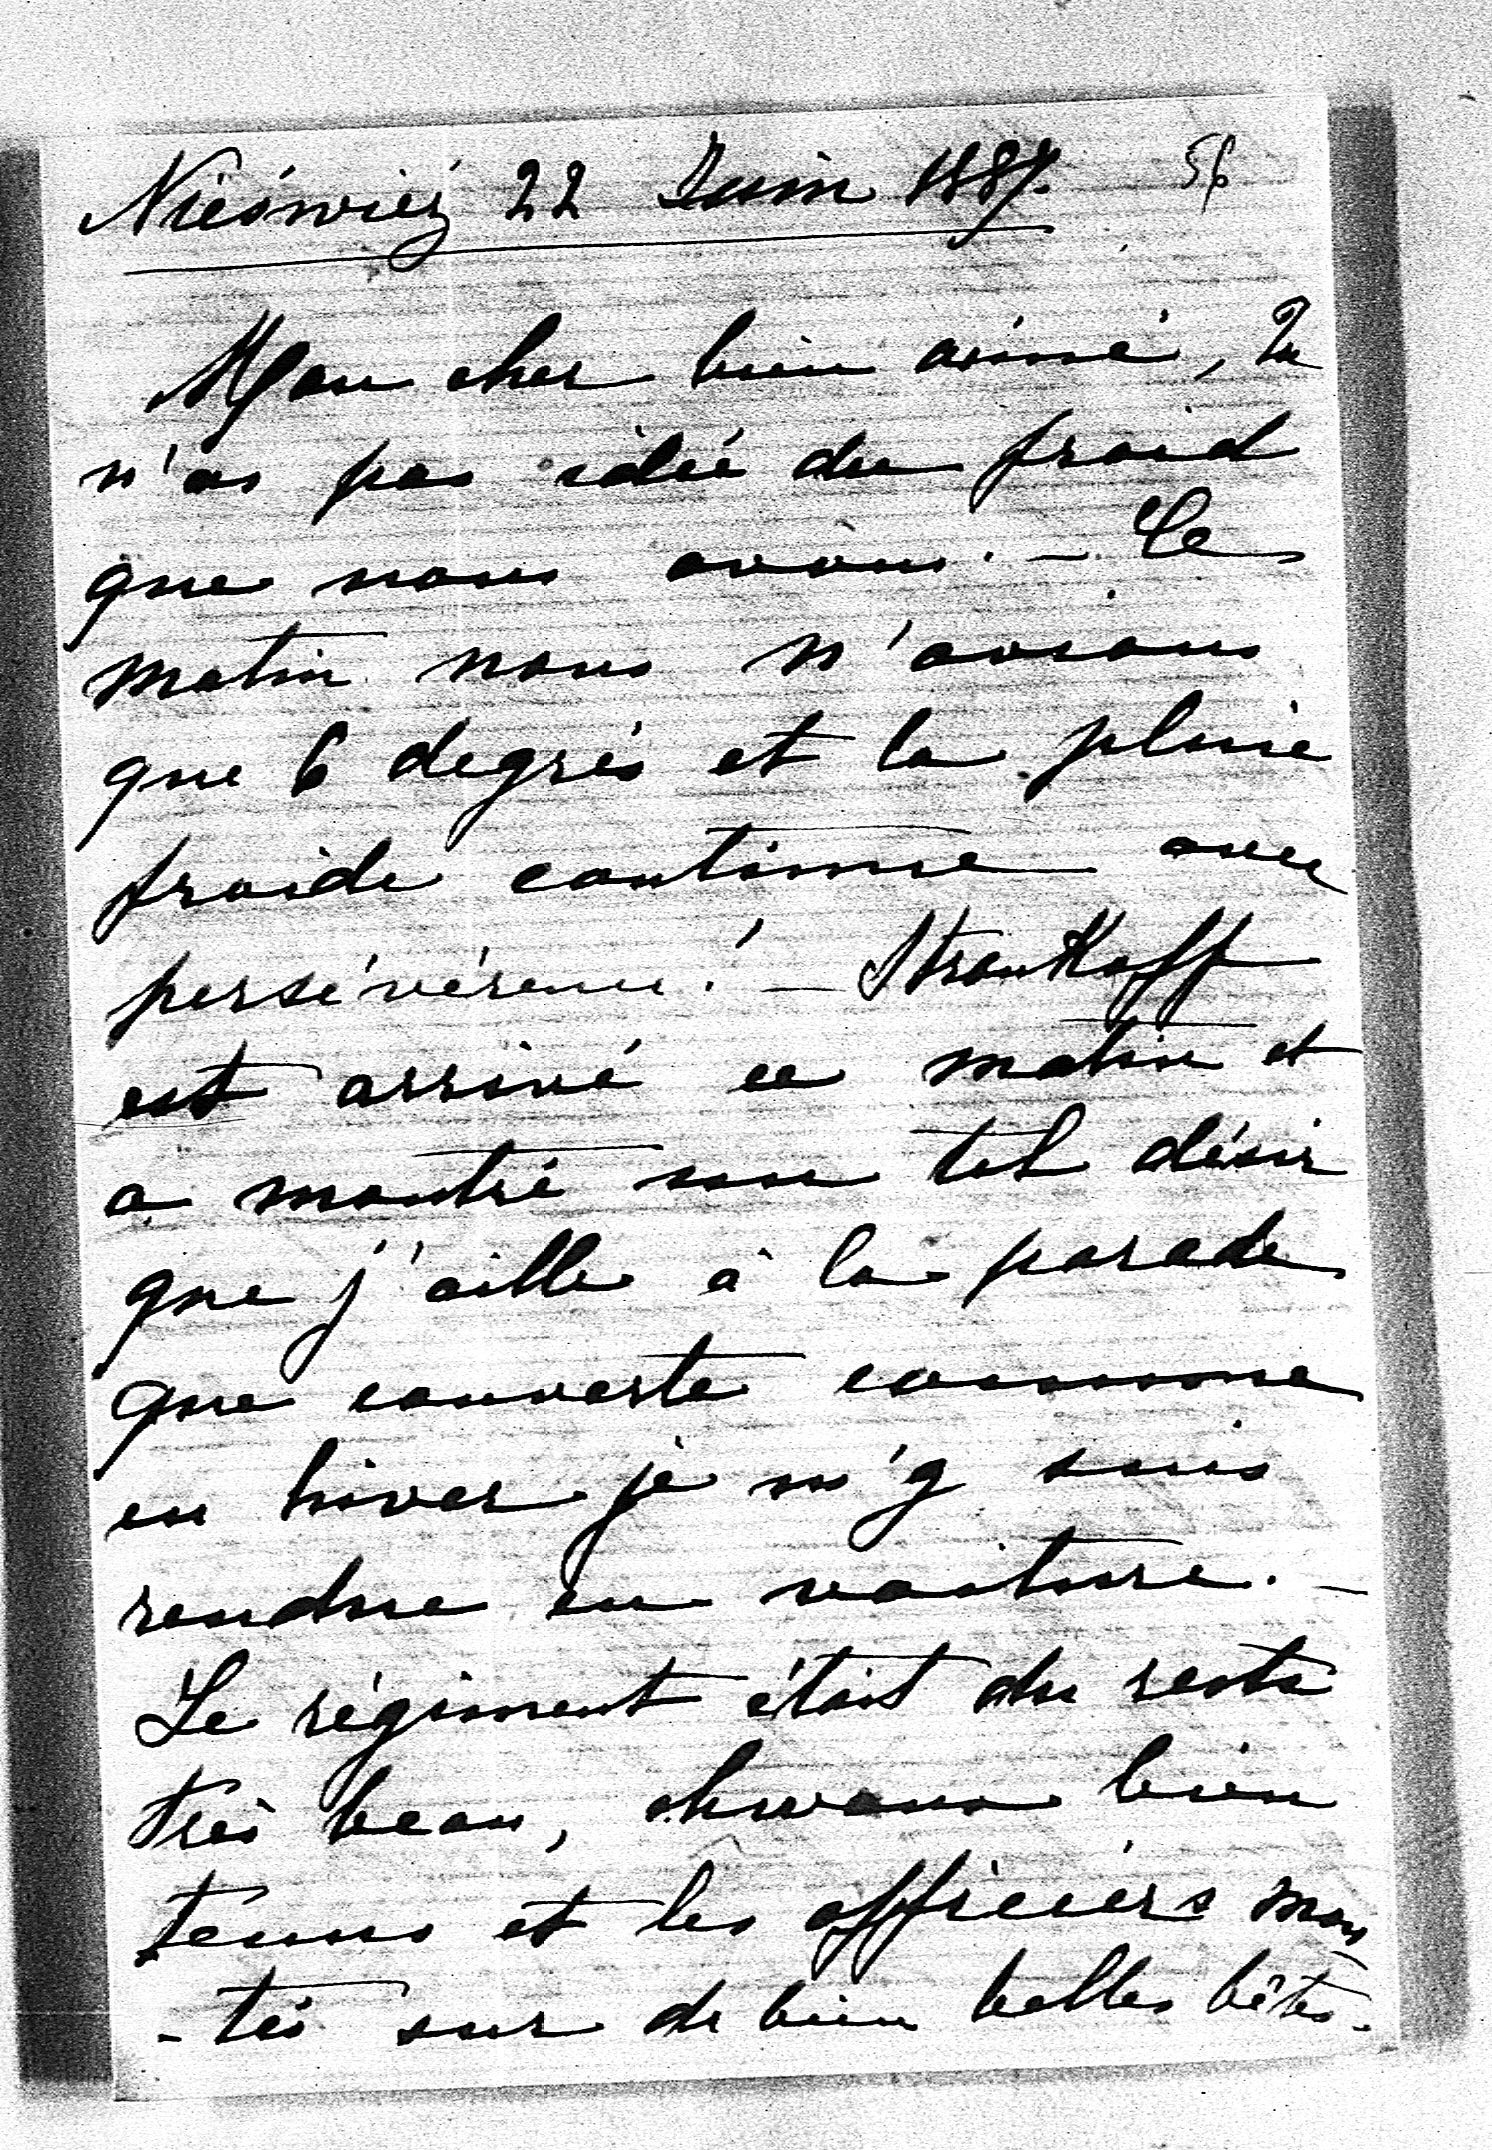 Nieśwież 22 Juin 1887. 56
Mon cher bien aimé, Tu
n'as pas idée du froid
que nous avons. – Ce
matin nous n'avions
que 6 degrés et la pluie
froide continue avec
persévérence! – Stroukoff
est arrivé ce matin et
a montré un tel désir
que j'aille à la parade
que couverte comme
en hiver je m'y suis
rendue en voiture. –
Le régiment était du reste
très beau, chevaux bien
tenus et les officiers mon
-tés sur de bien belles bêtes.